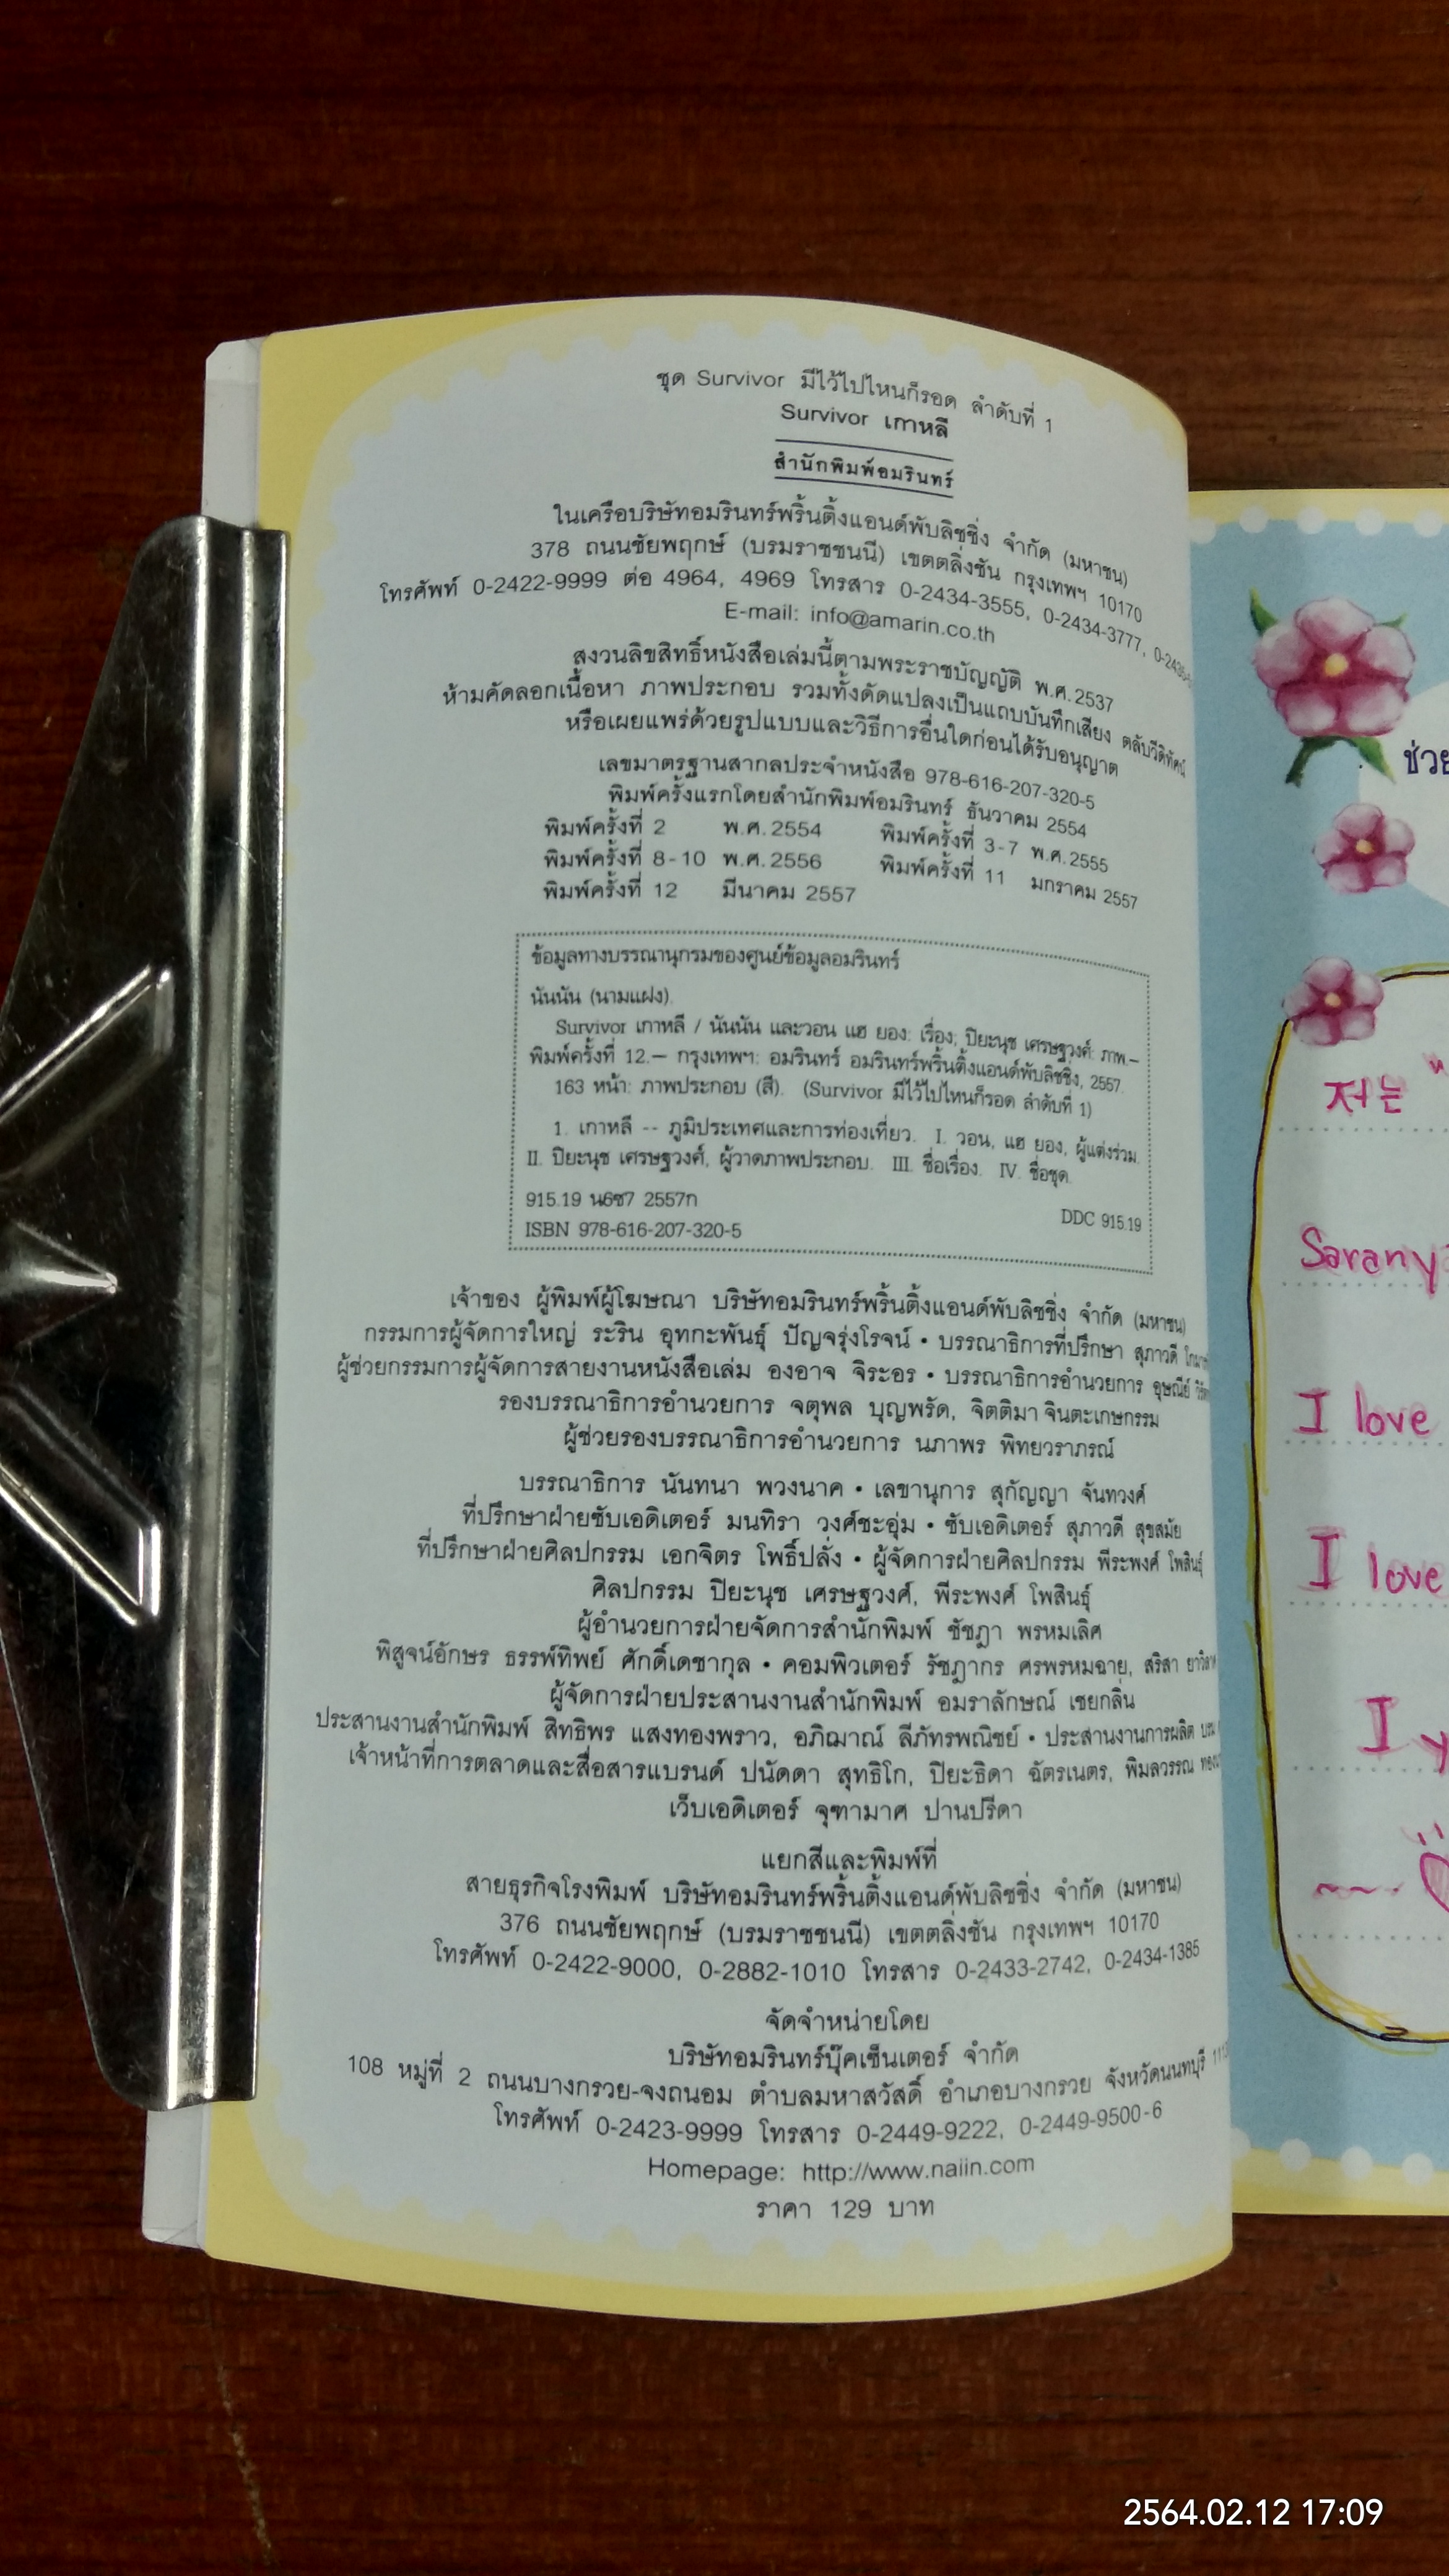 ชุด Survivor มีไว้ไปไหนก็รอด ลำดับที่ 1
Survivor เกาหลี
สำนักพิมพ์อมรินทร์
ในเครือบริษัทอมรินทร์พริ้นติ้งแอนด์พับลิชชิ่ง จำกัด (มหาชน)
378 ถนนชัยพฤกษ์ (บรมราชชนนี) เขตตลิ่งชัน กรุงเทพฯ 10170
โทรศัพท์ 0-2422-9999 ต่อ 4964, 4969 โทรสาร 0-2434-3555, 0-2434-3777,
E-mail: info@amarin.co.th
สงวนลิขสิทธิ์หนังสือเล่มนี้ตามพระราชบัญญัติ พ.ศ.2537
ห้ามคัดลอกเนื้อหา ภาพประกอบ รวมทั้งดัดแปลงเป็นแถบบันทึกเสียง ตลับวีดิทัศน์
หรือเผยแพร่ด้วยรูปแบบและวิธีการอื่นใดก่อนได้รับอนุญาต
เลขมาตรฐานสากลประจำหนังสือ 978-616-207-320-5
พิมพ์ครั้งแรกโดยสำนักพิมพ์อมรินทร์ ธันวาคม 2554
พิมพ์ครั้งที่ 2 พ.ศ.2554 พิมพ์ครั้งที่ 3-7 พ.ศ.2555
พิมพ์ครั้งที่ 8-10 พ.ศ.2556 พิมพ์ครั้งที่ 11 มกราคม 2557
พิมพ์ครั้งที่ 12 มีนาคม 2557
ข้อมูลทางบรรณานุกรมของศูนย์ข้อมูลอมรินทร์
นันนัน (นามแฝง).
Survivor เกาหลี / นันนัน และวอน แฮ ยอง: เรื่อง; ปิยะนุช เศรษฐวงศ์: ภาพ.–
พิมพ์ครั้งที่ 12.– กรุงเทพฯ: อมรินทร์ อมรินทร์พริ้นติ้งแอนด์พับลิชชิ่ง, 2557.
163 หน้า: ภาพประกอบ (สี). (Survivor มีไว้ไปไหนก็รอด ลำดับที่ 1)
1. เกาหลี -- ภูมิประเทศและการท่องเที่ยว. I. วอน, แฮ ยอง, ผู้แต่งร่วม.
II. ปิยะนุช เศรษฐวงศ์, ผู้วาดภาพประกอบ. III. ชื่อเรื่อง. IV. ชื่อชุด.
915.19 น6ซ7 2557ก
DDC 915.19
ISBN 978-616-207-320-5
เจ้าของ ผู้พิมพ์ผู้โฆษณา บริษัทอมรินทร์พริ้นติ้งแอนด์พับลิชชิ่ง จำกัด (มหาชน)
กรรมการผู้จัดการใหญ่ ระริน อุทกะพันธุ์ ปัญจรุ่งโรจน์ • บรรณาธิการที่ปรึกษา สุภาวดี
ผู้ช่วยกรรมการผู้จัดการสายงานหนังสือเล่ม องอาจ จิระอร • บรรณาธิการอำนวยการ อุษณีย์
รองบรรณาธิการอำนวยการ จตุพล บุญพรัด, จิตติมา จินตะเกษกรรม
ผู้ช่วยรองบรรณาธิการอำนวยการ นภาพร พิทยวราภรณ์
บรรณาธิการ นันทนา พวงนาค • เลขานุการ สุกัญญา จันทวงศ์
ที่ปรึกษาฝ่ายซับเอดิเตอร์ มนทิรา วงศ์ชะอุ่ม • ซับเอดิเตอร์ สุภาวดี สุขสมัย
ที่ปรึกษาฝ่ายศิลปกรรม เอกจิตร โพธิ์ปลั่ง • ผู้จัดการฝ่ายศิลปกรรม พีระพงศ์ โพสินธุ์
ศิลปกรรม ปิยะนุช เศรษฐวงศ์, พีระพงศ์ โพสินธุ์
ผู้อำนวยการฝ่ายจัดการสำนักพิมพ์ ชัชฎา พรหมเลิศ
พิสูจน์อักษร ธรรพ์ทิพย์ ศักดิ์เดชากุล • คอมพิวเตอร์ รัชฎากร ศรพรหมฉาย, สริสา
ผู้จัดการฝ่ายประสานงานสำนักพิมพ์ อมราลักษณ์ เชยกลิ่น
ประสานงานสำนักพิมพ์ สิทธิพร แสงทองพราว, อภิฌาณ์ ลีภัทรพณิชย์ • ประสานงานการผลิต
เจ้าหน้าที่การตลาดและสื่อสารแบรนด์ ปนัดดา สุทธิโก, ปิยะธิดา ฉัตรเนตร, พิมลวรรณ
เว็บเอดิเตอร์ จุฑามาศ ปานปรีดา
แยกสีและพิมพ์ที่
สายธุรกิจโรงพิมพ์ บริษัทอมรินทร์พริ้นติ้งแอนด์พับลิชชิ่ง จำกัด (มหาชน)
376 ถนนชัยพฤกษ์ (บรมราชชนนี) เขตตลิ่งชัน กรุงเทพฯ 10170
โทรศัพท์ 0-2422-9000, 0-2882-1010 โทรสาร 0-2433-2742, 0-2434-1385
จัดจำหน่ายโดย
บริษัทอมรินทร์บุ๊คเซ็นเตอร์ จำกัด
108 หมู่ที่ 2 ถนนบางกรวย-จงถนอม ตำบลมหาสวัสดิ์ อำเภอบางกรวย จังหวัดนนทบุรี
โทรศัพท์ 0-2423-9999 โทรสาร 0-2449-9222, 0-2449-9500-6
Homepage: http://www.naiin.com
ราคา 129 บาท
ช่วย
저는
Sarany
I love
I love
I y
2564.02.12 17:09